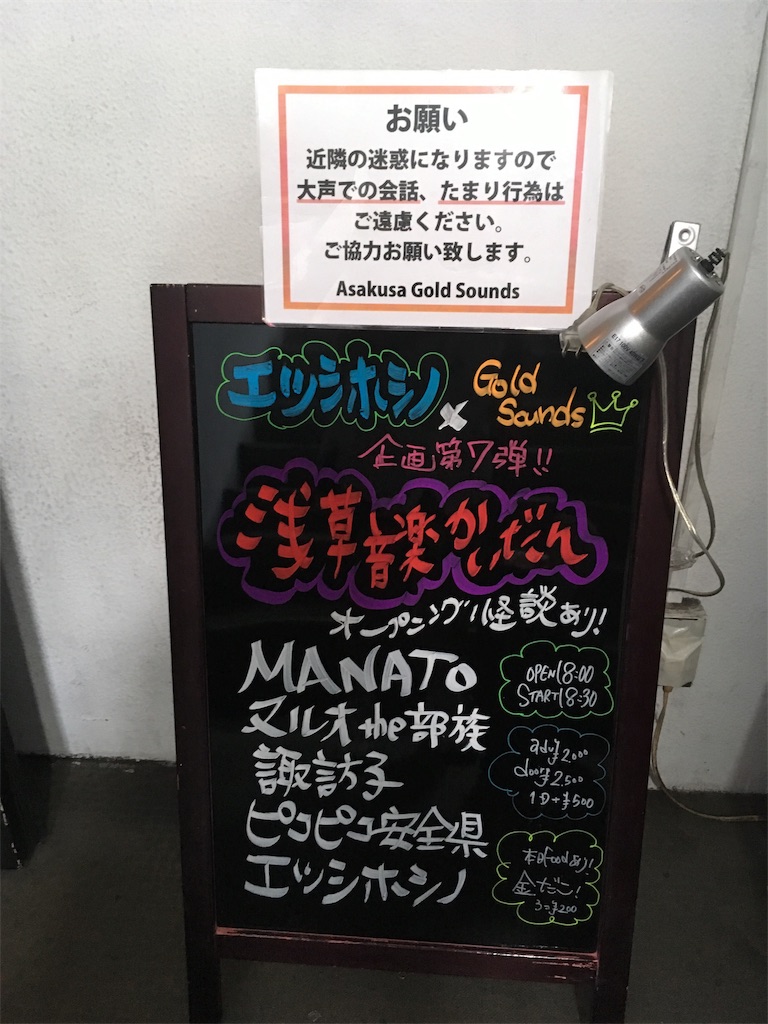 お願い
近隣の迷惑になりますので
大声での会話、たまり行為は
ご遠慮ください。
ご協力お願い致します。
Asakusa Gold Sounds
エツシホシノ × Gold Sounds
企画第7弾!!
浅草音楽かいだん
オープニング怪談あり!
MANATO
ヌルオtheの部族
諏訪子
ピコピコ安全県
エツシホシノ
OPEN18:00
START18:30
adv¥2.000
door¥2.500
1D+¥500
本日foodあり!
金だこ!
3コ¥200